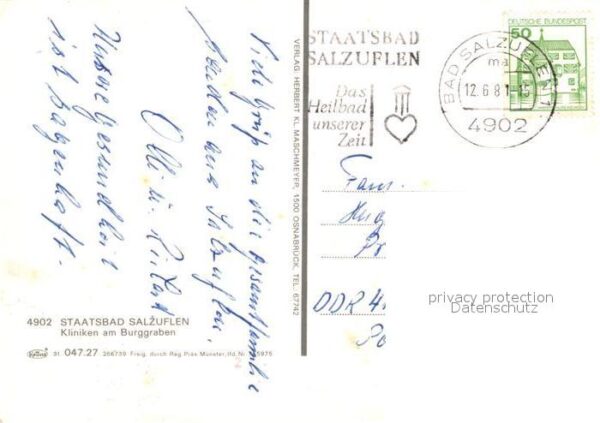 Viele Grüße an die Gesamtfamilie
senden aus Salzuflen
Olli u.
Unsere Gesundheit
ist sagenhaft.
4902 STAATSBAD SALZUFLEN
Kliniken am Burggraben
31 047.27 266739 Freig. durch Reg Präs Münster, lfd. Nr. 5975
VERLAG: HERBERT KL. MASCHMEYER, 1500 OSNABRÜCK, TEL. 67742
STAATSBAD
SALZUFLEN
Das
Heilbad
unserer
Zeit
BAD SALZUFLEN 1
ma
12.6.81-15
4902
50
DEUTSCHE BUNDESPOST
Fam.
DDR 4
privacy protection
Datenschutz